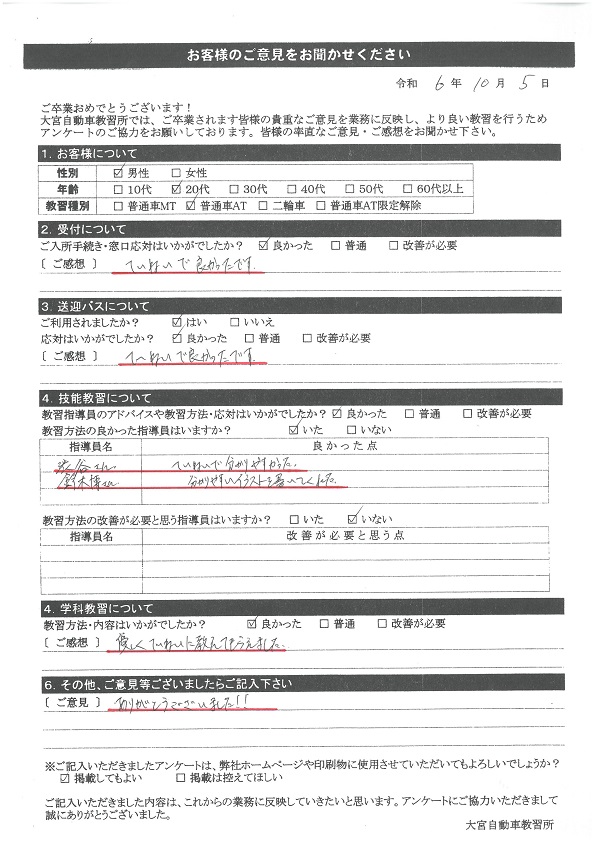 お客様のご意見をお聞かせください
令和 6 年 10 月 5 日
ご卒業おめでとうございます！
大宮自動車教習所では、ご卒業されます皆様の貴重なご意見を業務に反映し、より良い教習を行うため
アンケートのご協力をお願いしております。皆様の率直なご意見・ご感想をお聞かせ下さい。
1. お客様について
性別 ☑ 男性 □ 女性
年齢 □ 10代 ☑ 20代 □ 30代 □ 40代 □ 50代 □ 60代以上
教習種別 □ 普通車MT ☑ 普通車AT □ 二輪車 □ 普通車AT限定解除
2. 受付について
ご入所手続き・窓口応対はいかがでしたか？ ☑ 良かった □ 普通 □ 改善が必要
〔 ご感想 〕 ていねいで良かったです。
3. 送迎バスについて
ご利用されましたか？ ☑ はい □ いいえ
応対はいかがでしたか？ ☑ 良かった □ 普通 □ 改善が必要
〔 ご感想 〕 ていねいで良かったです。
4. 技能教習について
教習指導員のアドバイスや教習方法・応対はいかがでしたか？ ☑ 良かった □ 普通 □ 改善が必要
教習方法の良かった指導員はいますか？ ☑ いた □ いない
指導員名 良かった点
渋谷さん ていねいで分かりやすかった。
鈴木博さん 分かりやすいイラストを書いてくれた。
教習方法の改善が必要と思う指導員はいますか？ □ いた ☑ いない
指導員名 改善が必要と思う点
4. 学科教習について
教習方法・内容はいかがでしたか？ ☑ 良かった □ 普通 □ 改善が必要
〔 ご感想 〕 優しくていねいに教えてもらえました。
6. その他、ご意見等ございましたらご記入下さい
〔 ご意見 〕 ありがとうございました!!
※ご記入いただきましたアンケートは、弊社ホームページや印刷物に使用させていただいてもよろしいでしょうか？
☑ 掲載してもよい □ 掲載は控えてほしい
ご記入いただきました内容は、これからの業務に反映していきたいと思います。アンケートにご協力いただきまして
誠にありがとうございました。
大宮自動車教習所